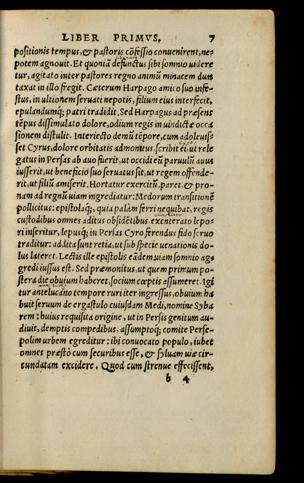 LIBER PRIMVS, 7
positionis tempus, & pastoris cõfessio convenirent, ne=
potem agnouit. Et quoniã defunctus sibi somnio uidere
tur, agitato inter pastores regno animũ minacem dun
taxat in illo fregit. Cæterum Harpago amico suo infe=
stus, in ultionem seruati nepotis, filium eius interfecit,
epulandumq; patri tradidit. Sed Harpagus ad præsens
tẽpus dissimulato dolore, odium regis in uindictæ occa
sionem distulit. Interiecto demũ tẽpore, cum adoleuis=
set Cyrus, dolore orbitatis admonitus, scribit ei, ut rele
gatus in Persas ab auo fuerit, ut occidi eũ paruulũ auus
iusserit, ut beneficio suo seruatus sit, ut regem offende=
rit, ut filiũ amiserit. Hortatur exercitũ, paret & pro=
nam ad regnũ uiam ingrediatur: Medorum transitionẽ
pollicitus: epistolaq; quia palàm ferri nequibat, regis
custodibus omnes aditus obsidẽtibus: exenterato lepo=
ri inseritur, lepusq; in Persas Cyro ferendus fido seruo
traditur: addita sunt retia, ut sub specie uenationis do=
lus lateret. Lectis ille epistolis eãdem uiam somnio ag=
gredi iussus est. Sed præmonitus, ut quem primum po=
stera die obuium haberet, socium cœptis assumeret. Igi
tur antelucano tempore ruri iter ingressus, obuium ha
buit seruum de ergastulo cuiusdam Medi, nomine Syba
rem: huius requisita origine, ut in Persis genitum au=
diuit, demptis compedibus, assumptoq; comite Perse=
polim urbem egreditur: ibi conuocato populo, iubet
omnes præstò cum securibus esse, & syluam uiæ cir=
cundatam excidere. Quod cum strenue effecissent,
b 4